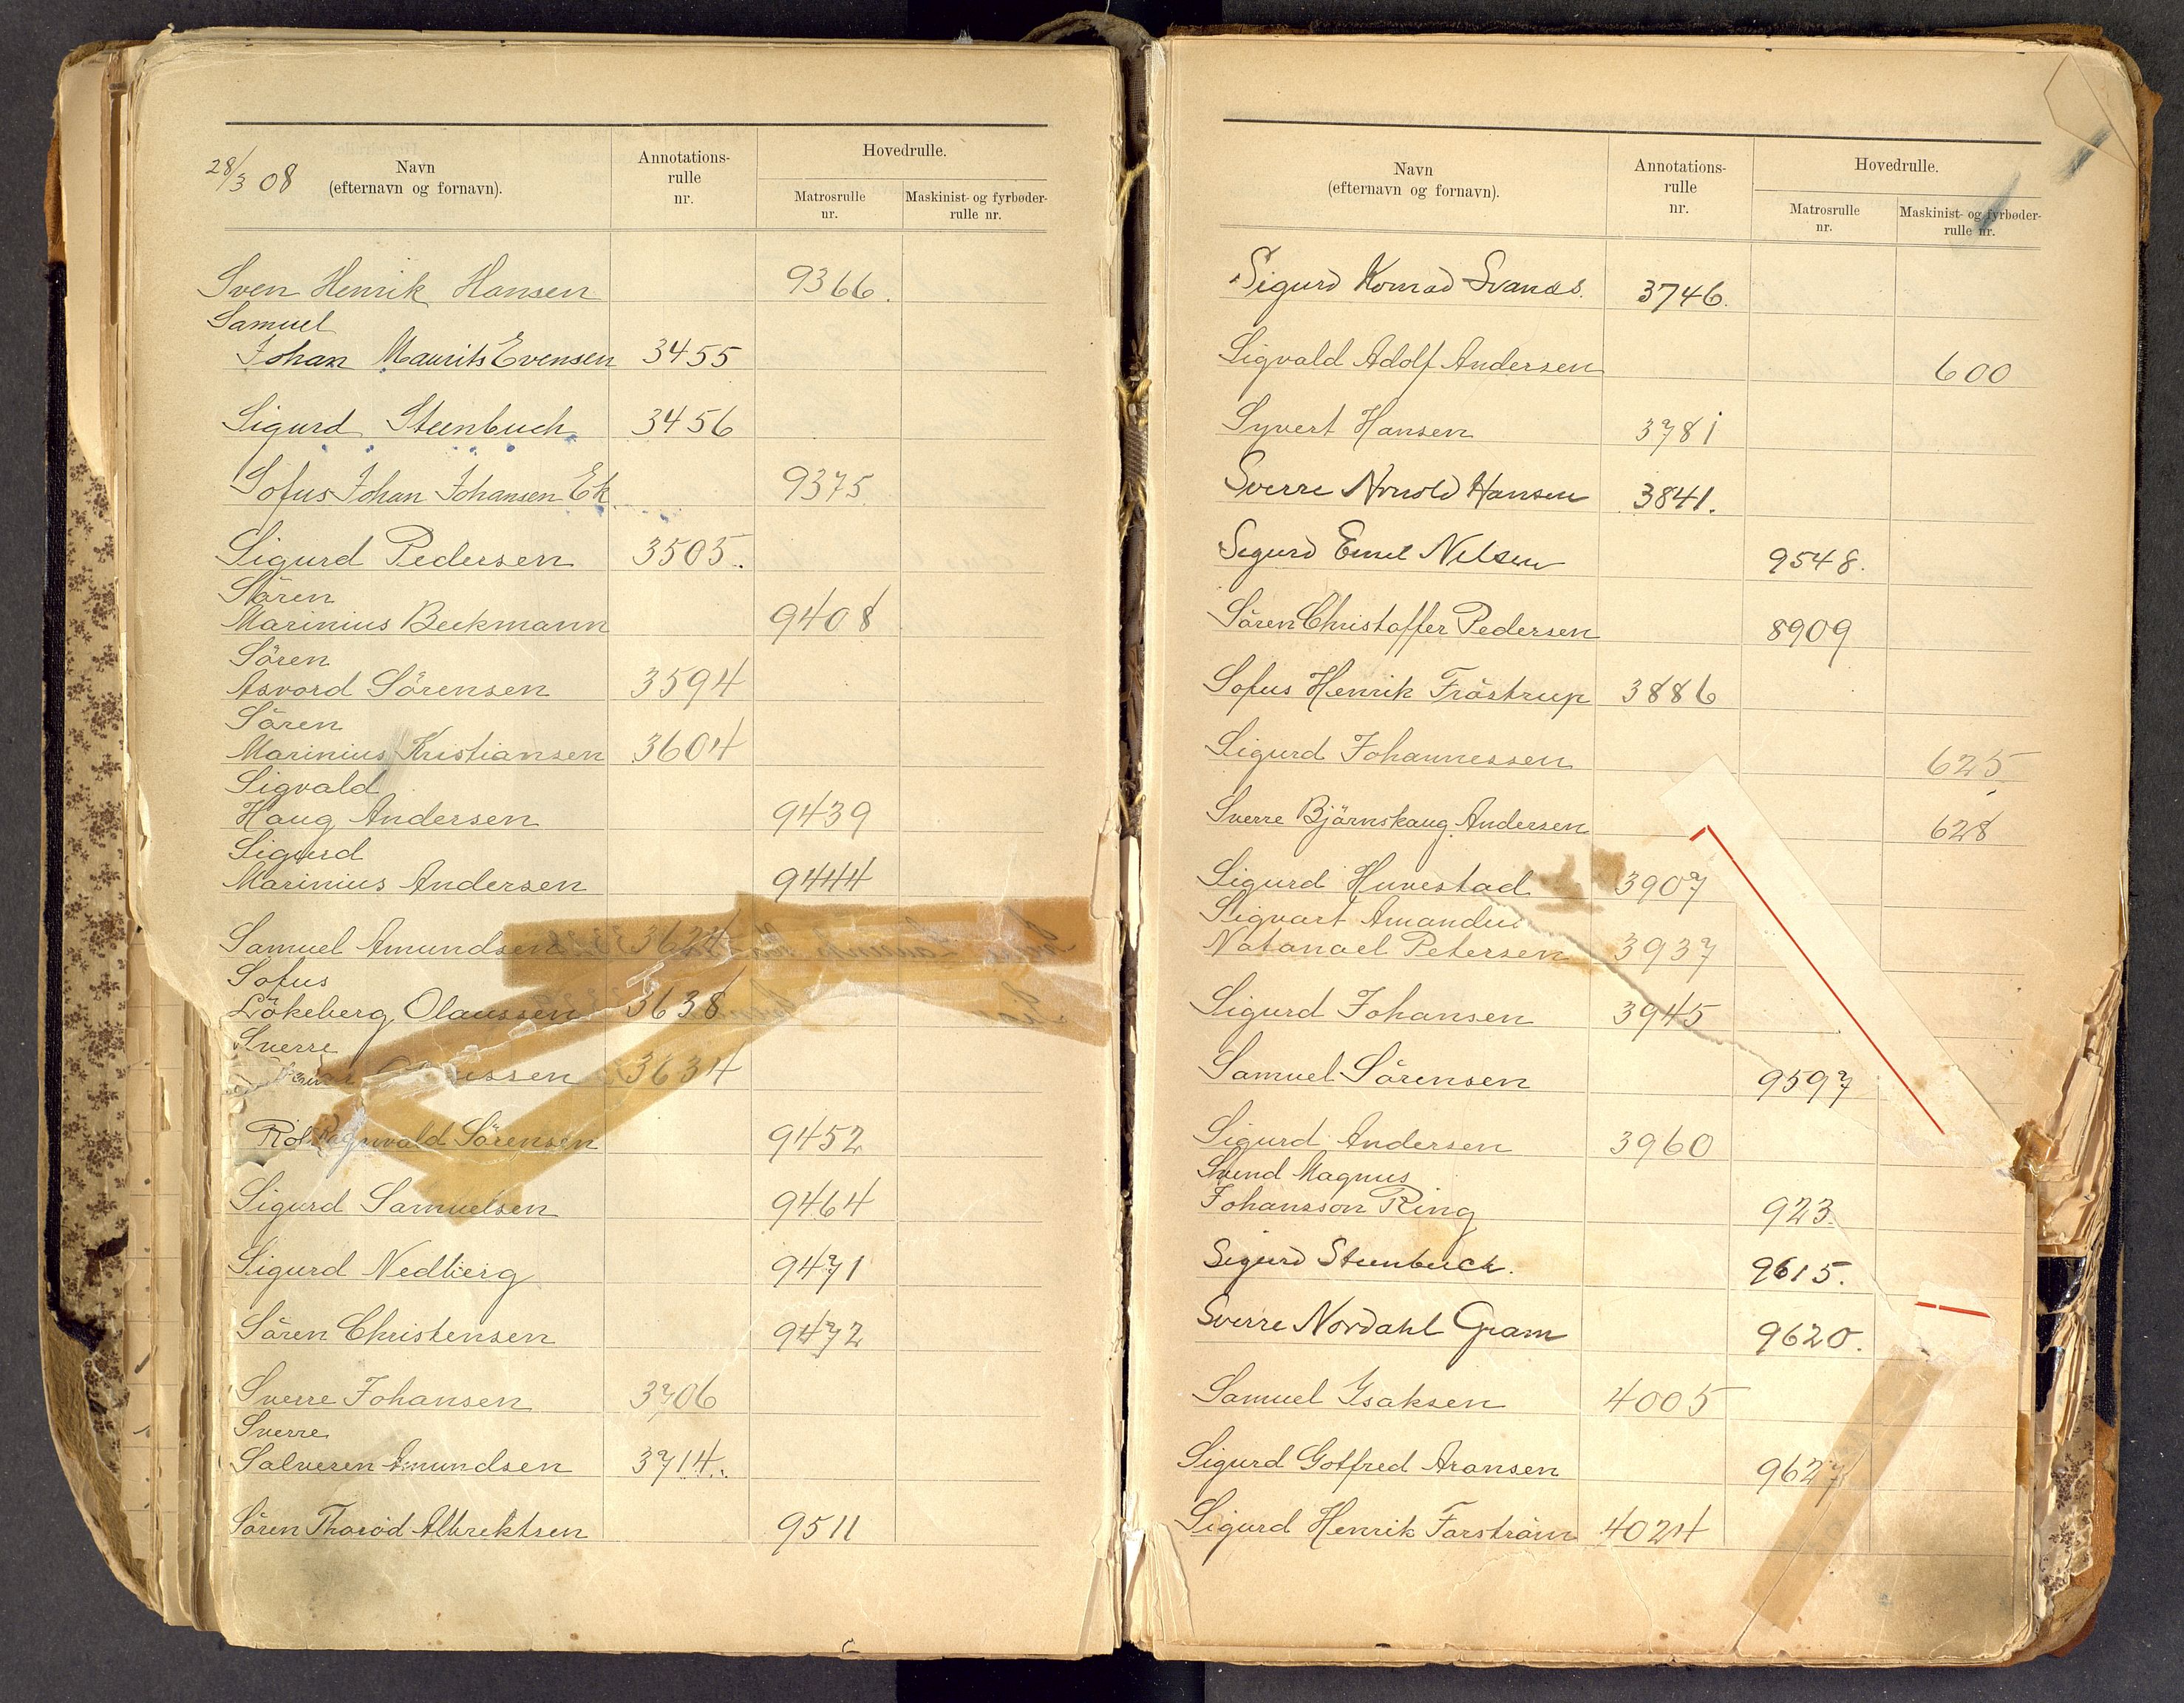 28/3 08
Navn
(efternavn og fornavn).
Annotations-
rulle
nr.
Hovedrulle.
Matrosrulle
nr.
Maskinist- og fyrbøder-
rulle nr.
Sven Henrik Hansen 9366.
Samuel
Johan Maurits Evensen 3455
Sigurd Steenbuch 3456
Sofus Johan Johansen Ek 9375
Sigurd Pedersen 3505.
Sören
Marinius Beckmann 9408
Sören
Asvord Sörensen 3594
Sören
Marinius Kristiansen 3604
Sigvald
Haug Andersen 9439
Sigurd
Marinius Andersen 9444
Samuel Amundsen 3624
Sofus
Lökeberg Olaussen 3638
Sverre
3634
Ragnvald Sörensen 9452
Sigurd Samuelsen 9464
Sigurd Nedberg 9471
Sören Christensen 9472
Sverre Johansen 3706
Sverre
Salveren Amundsen 3714.
Sören Thorod Albrektsen 9511
Navn
(efternavn og fornavn).
Annotations-
rulle
nr.
Hovedrulle.
Matrosrulle
nr.
Maskinist- og fyrbøder-
rulle nr.
Sigurd Konrad Svanes. 3746.
Sigvald Adolf Andersen 600
Syvert Hansen 3781
Sverre Arnold Hansen 3841.
Sigurd Emil Nilsen 9548.
Sören Christoffer Pedersen 8909
Sofus Henrik Fröstrup 3886
Sigurd Johannessen 625
Sverre Björnskaug Andersen 628
Sigurd Hunestad 3907
Sigvart Amandus
Natanael Petersen 3937
Sigurd Johansen 3945
Samuel Sörensen 9597
Sigurd Andersen 3960
Svend Magnus
Johansson Ring 923.
Sigurd Steenbuch. 9615.
Sverre Nordahl Gram 9620.
Samuel Isaksen 4005
Sigurd Gotfred Aronsen 9627
Sigurd Henrik Farström 4024